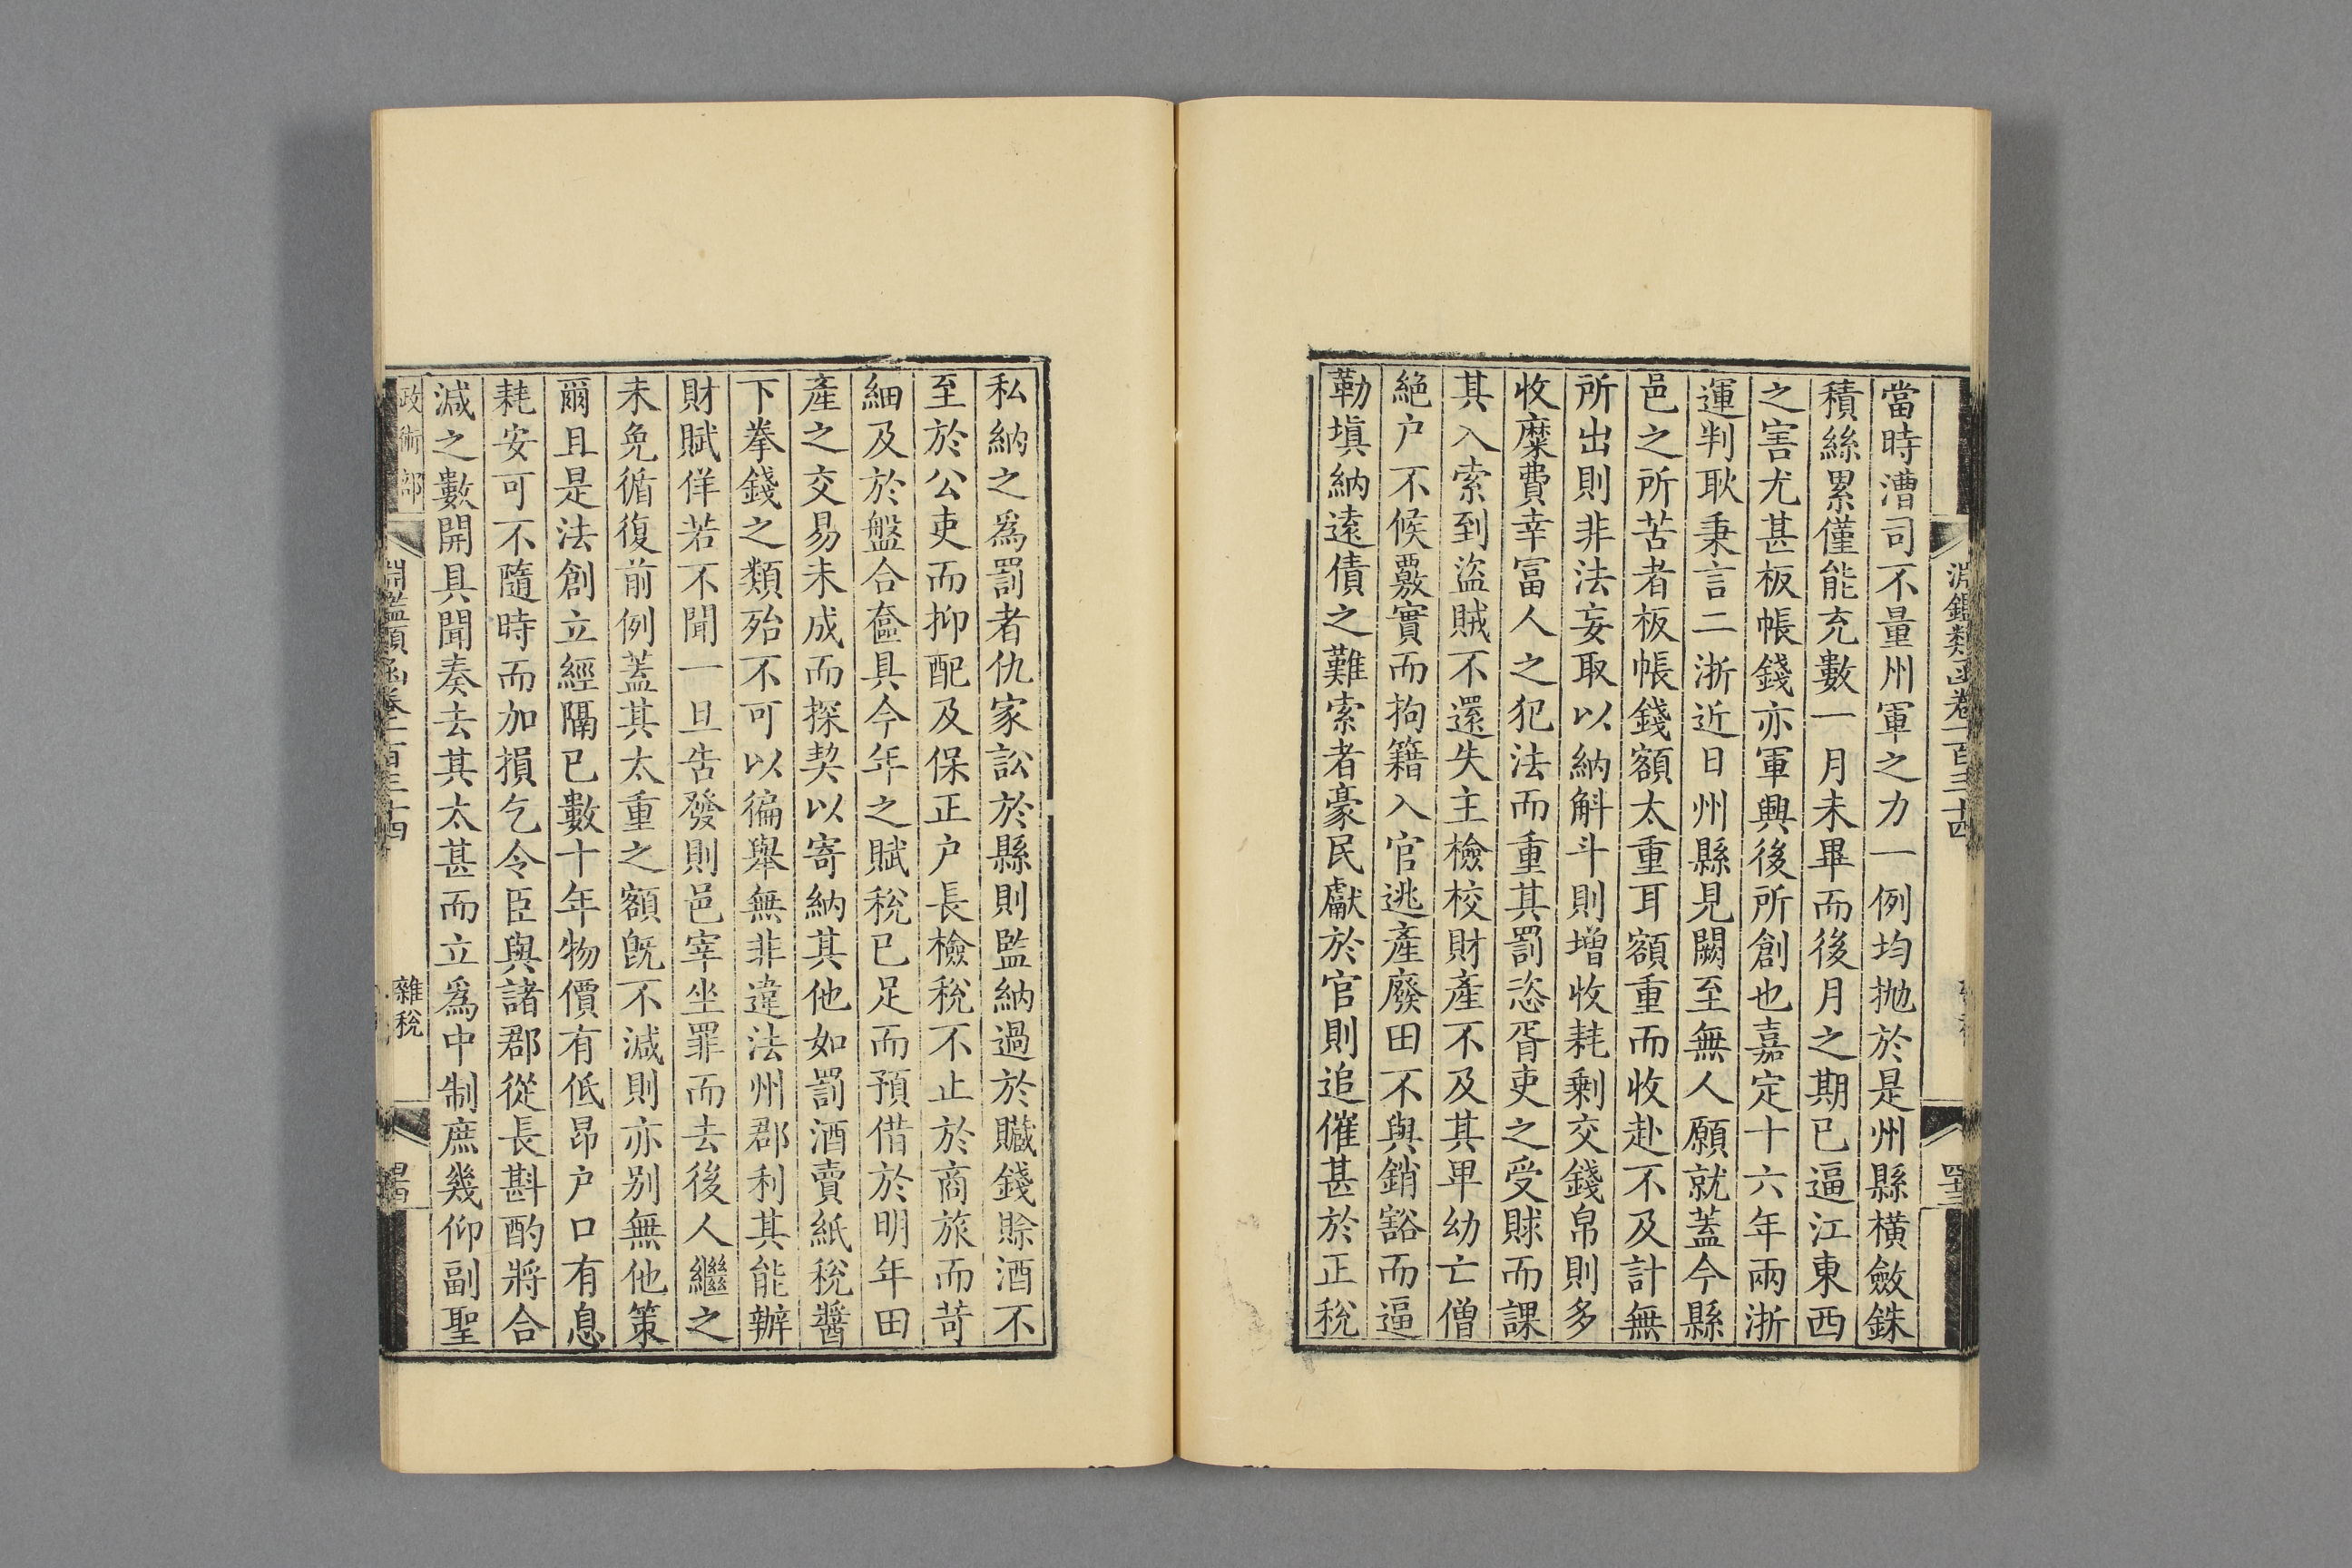 淵鑑類函卷一百三十四
當時漕司不量州軍之力一例均拋於是州縣橫斂銖
積絲累僅能充數一月未畢而後月之期已逼江東西
之害尤甚板帳錢亦軍興後所創也嘉定十六年兩浙
運判耿秉言二浙近日州縣見闕至無人願就蓋今縣
邑之所苦者板帳錢額太重耳額重而收赴不及計無
所出則非法妄取以納斛斗則增收耗剩交錢帛則多
收糜費幸富人之犯法而重其罰恣胥吏之受賕而課
其入索到盜賊不還失主檢校財產不及其卑幼亡僧
絕户不候覈實而拘籍入官逃產廢田不與銷豁而逼
勒塡納遠債之難索者豪民獻於官則追催甚於正稅
私納之爲罰者仇家訟於縣則監納過於贓錢賒酒不
至於公吏而抑配及保正户長檢稅不止於商旅而苛
細及於盤合奩具今年之賦稅已足而預借於明年田
產之交易未成而探契以寄納其他如罰酒賣紙稅醬
下拳錢之類殆不可以徧舉無非違法州郡利其能辦
財賦佯若不聞一旦告發則邑宰坐罪而去後人繼之
未免循復前例蓋其太重之額旣不減則亦别無他策
爾且是法創立經隔已數十年物價有低昂户口有息
耗安可不隨時而加損乞令臣與諸郡從長斟酌將合
減之數開具聞奏去其太甚而立爲中制庶幾仰副聖
政術部
淵鑑類函卷一百三十四
雜稅